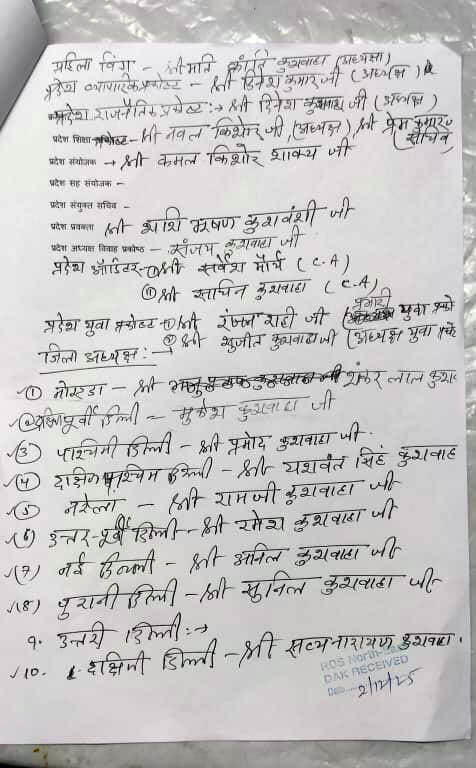 महिला विंग - श्रीमति कुशवाहा (अध्यक्षा)
प्रदेश व्यापारिक प्रकोष्ठ - श्री दिनेश कुमार जी (अध्यक्ष)
प्रदेश राजनैतिक प्रकोष्ठ :→ श्री दिनेश कुशवाहा जी (अध्यक्ष)
प्रदेश शिक्षा प्रकोष्ठ - श्री नवल किशोर जी, (अध्यक्ष) श्री प्रेम कुमार
(सचिव)
प्रदेश संयोजक → श्री कमल किशोर शाक्य जी
प्रदेश सह संयोजक -
प्रदेश संयुक्त सचिव -
प्रदेश प्रवक्ता श्री शशि भूषण कुशवंशी जी
प्रदेश अध्यक्ष विवाह प्रकोष्ठ - संजय कुशवाहा जी
प्रदेश ऑडिटर - (i) श्री सर्वेश मौर्य (C.A)
(ii) श्री सचिन कुशवाहा (C.A)
प्रभारी
प्रदेश युवा प्रकोष्ठ ① श्री रंजन राही जी युवा
② श्री सुजीत कुशवाहा जी (अध्यक्ष युवा
जिला अध्यक्ष :→
① - श्री शंकर लाल
② दक्षिण पूर्वी दिल्ली - मुकेश कुशवाहा जी
③ पश्चिमी दिल्ली - श्री प्रमोद कुशवाहा जी
④ दक्षिण पश्चिम दिल्ली - श्री यशवंत सिंह कुशवाह
⑤ नरेला - श्री रामजी कुशवाहा जी
(6) उत्तर-पूर्वी दिल्ली - श्री रमेश कुशवाहा जी
(7) नई दिल्ली - श्री अनिल कुशवाहा जी
(8) पुरानी दिल्ली - श्री सुनिल कुशवाहा जी
9. उत्तरी दिल्ली :→
10. दक्षिणी दिल्ली - श्री सत्यनारायण कुशवाहा.
RDS North-East
DAK RECEIVED
Date 2/12/25